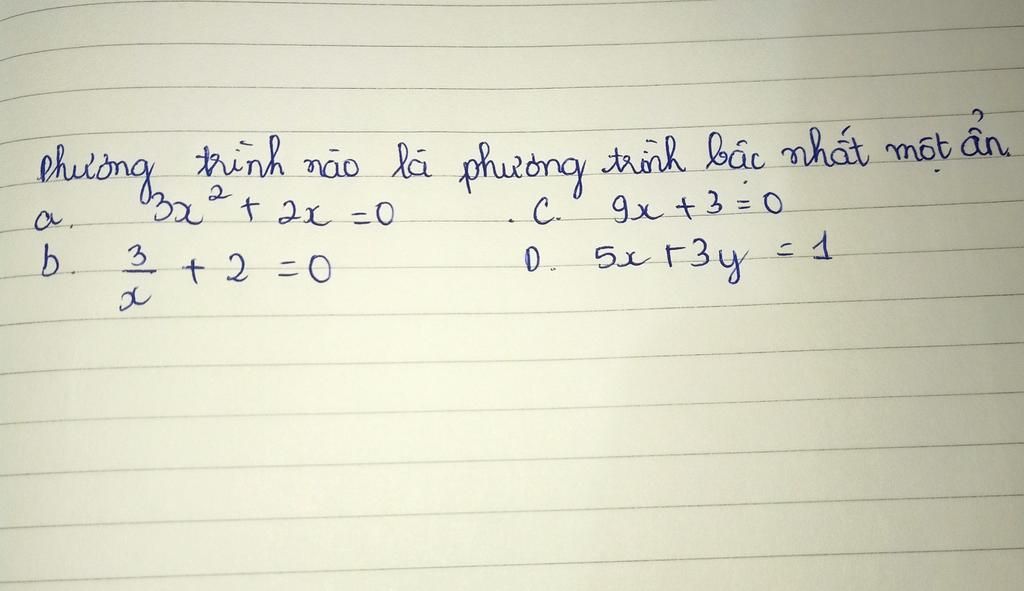 phương trình nào là phương trình bậc nhất một ẩn.
a. 3x² + 2x = 0 . C. 9x + 3 = 0
b. 3/x + 2 = 0 D. 5x + 3y = 1